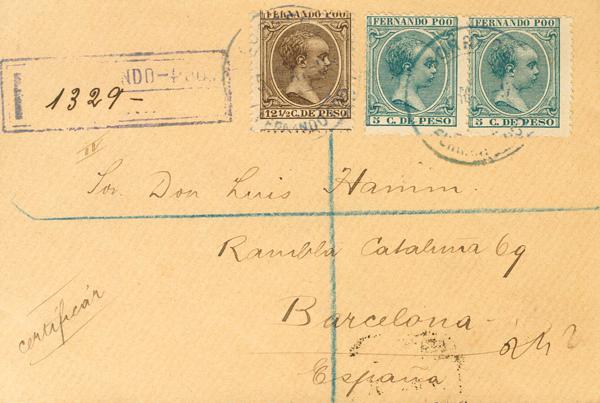 FERNANDO POO
12½ C. DE PESO
FERNANDO POO
5 C. DE PESO
FERNANDO POO
5 C. DE PESO
1329-
Sor. Don Luis Hamm.
Rambla Cataluña 69
Barcelona
España
certificar